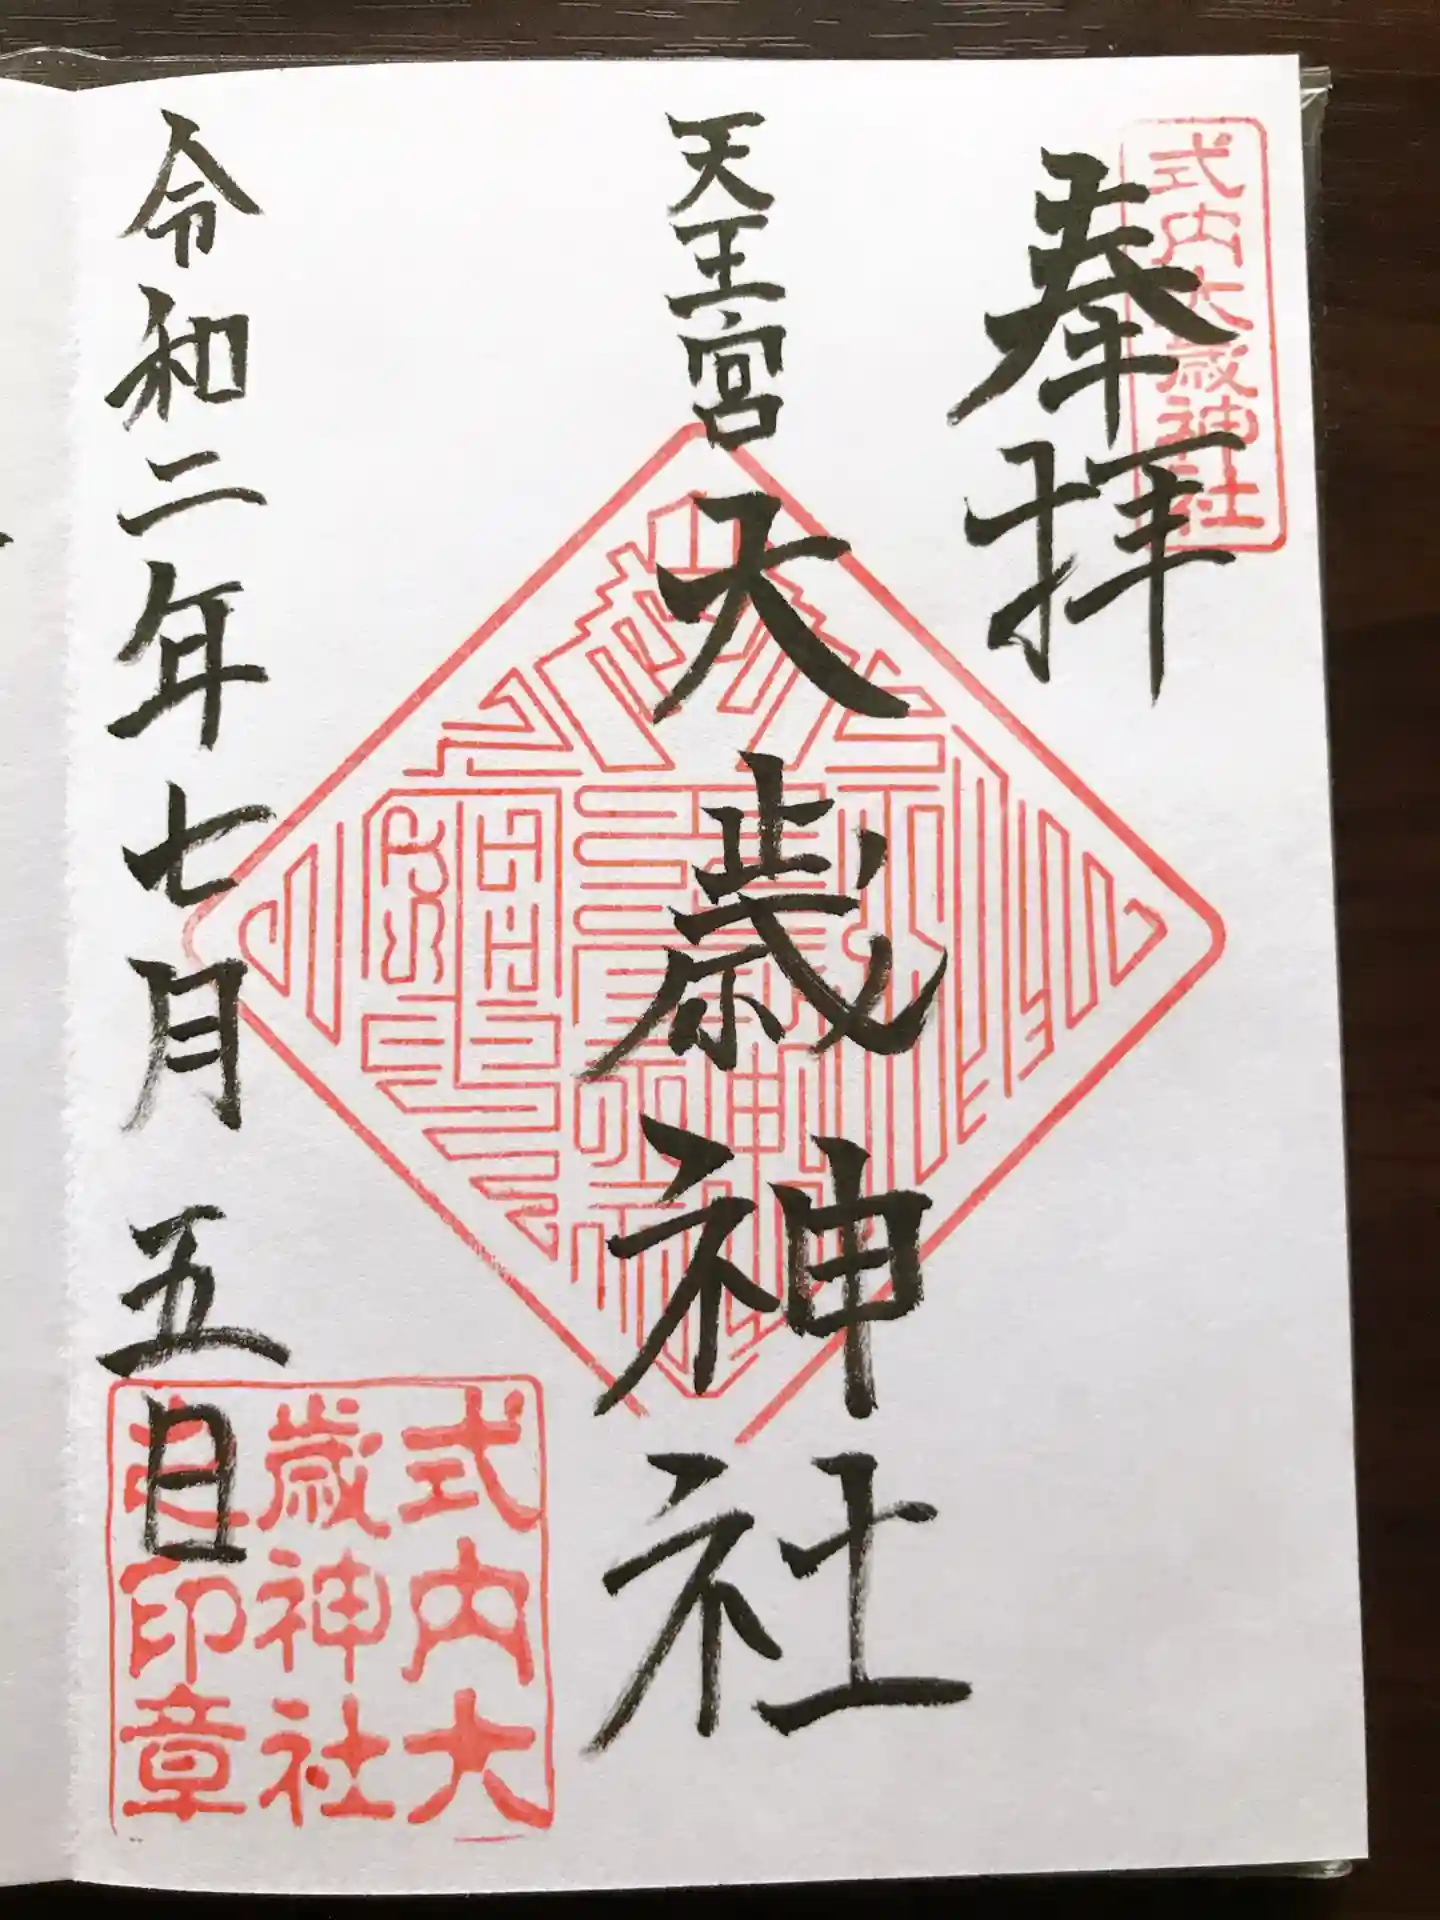 式内大歳神社
奉拝
天王宮
大歳神社
令和二年七月五日
式内大
歳神社
之印章